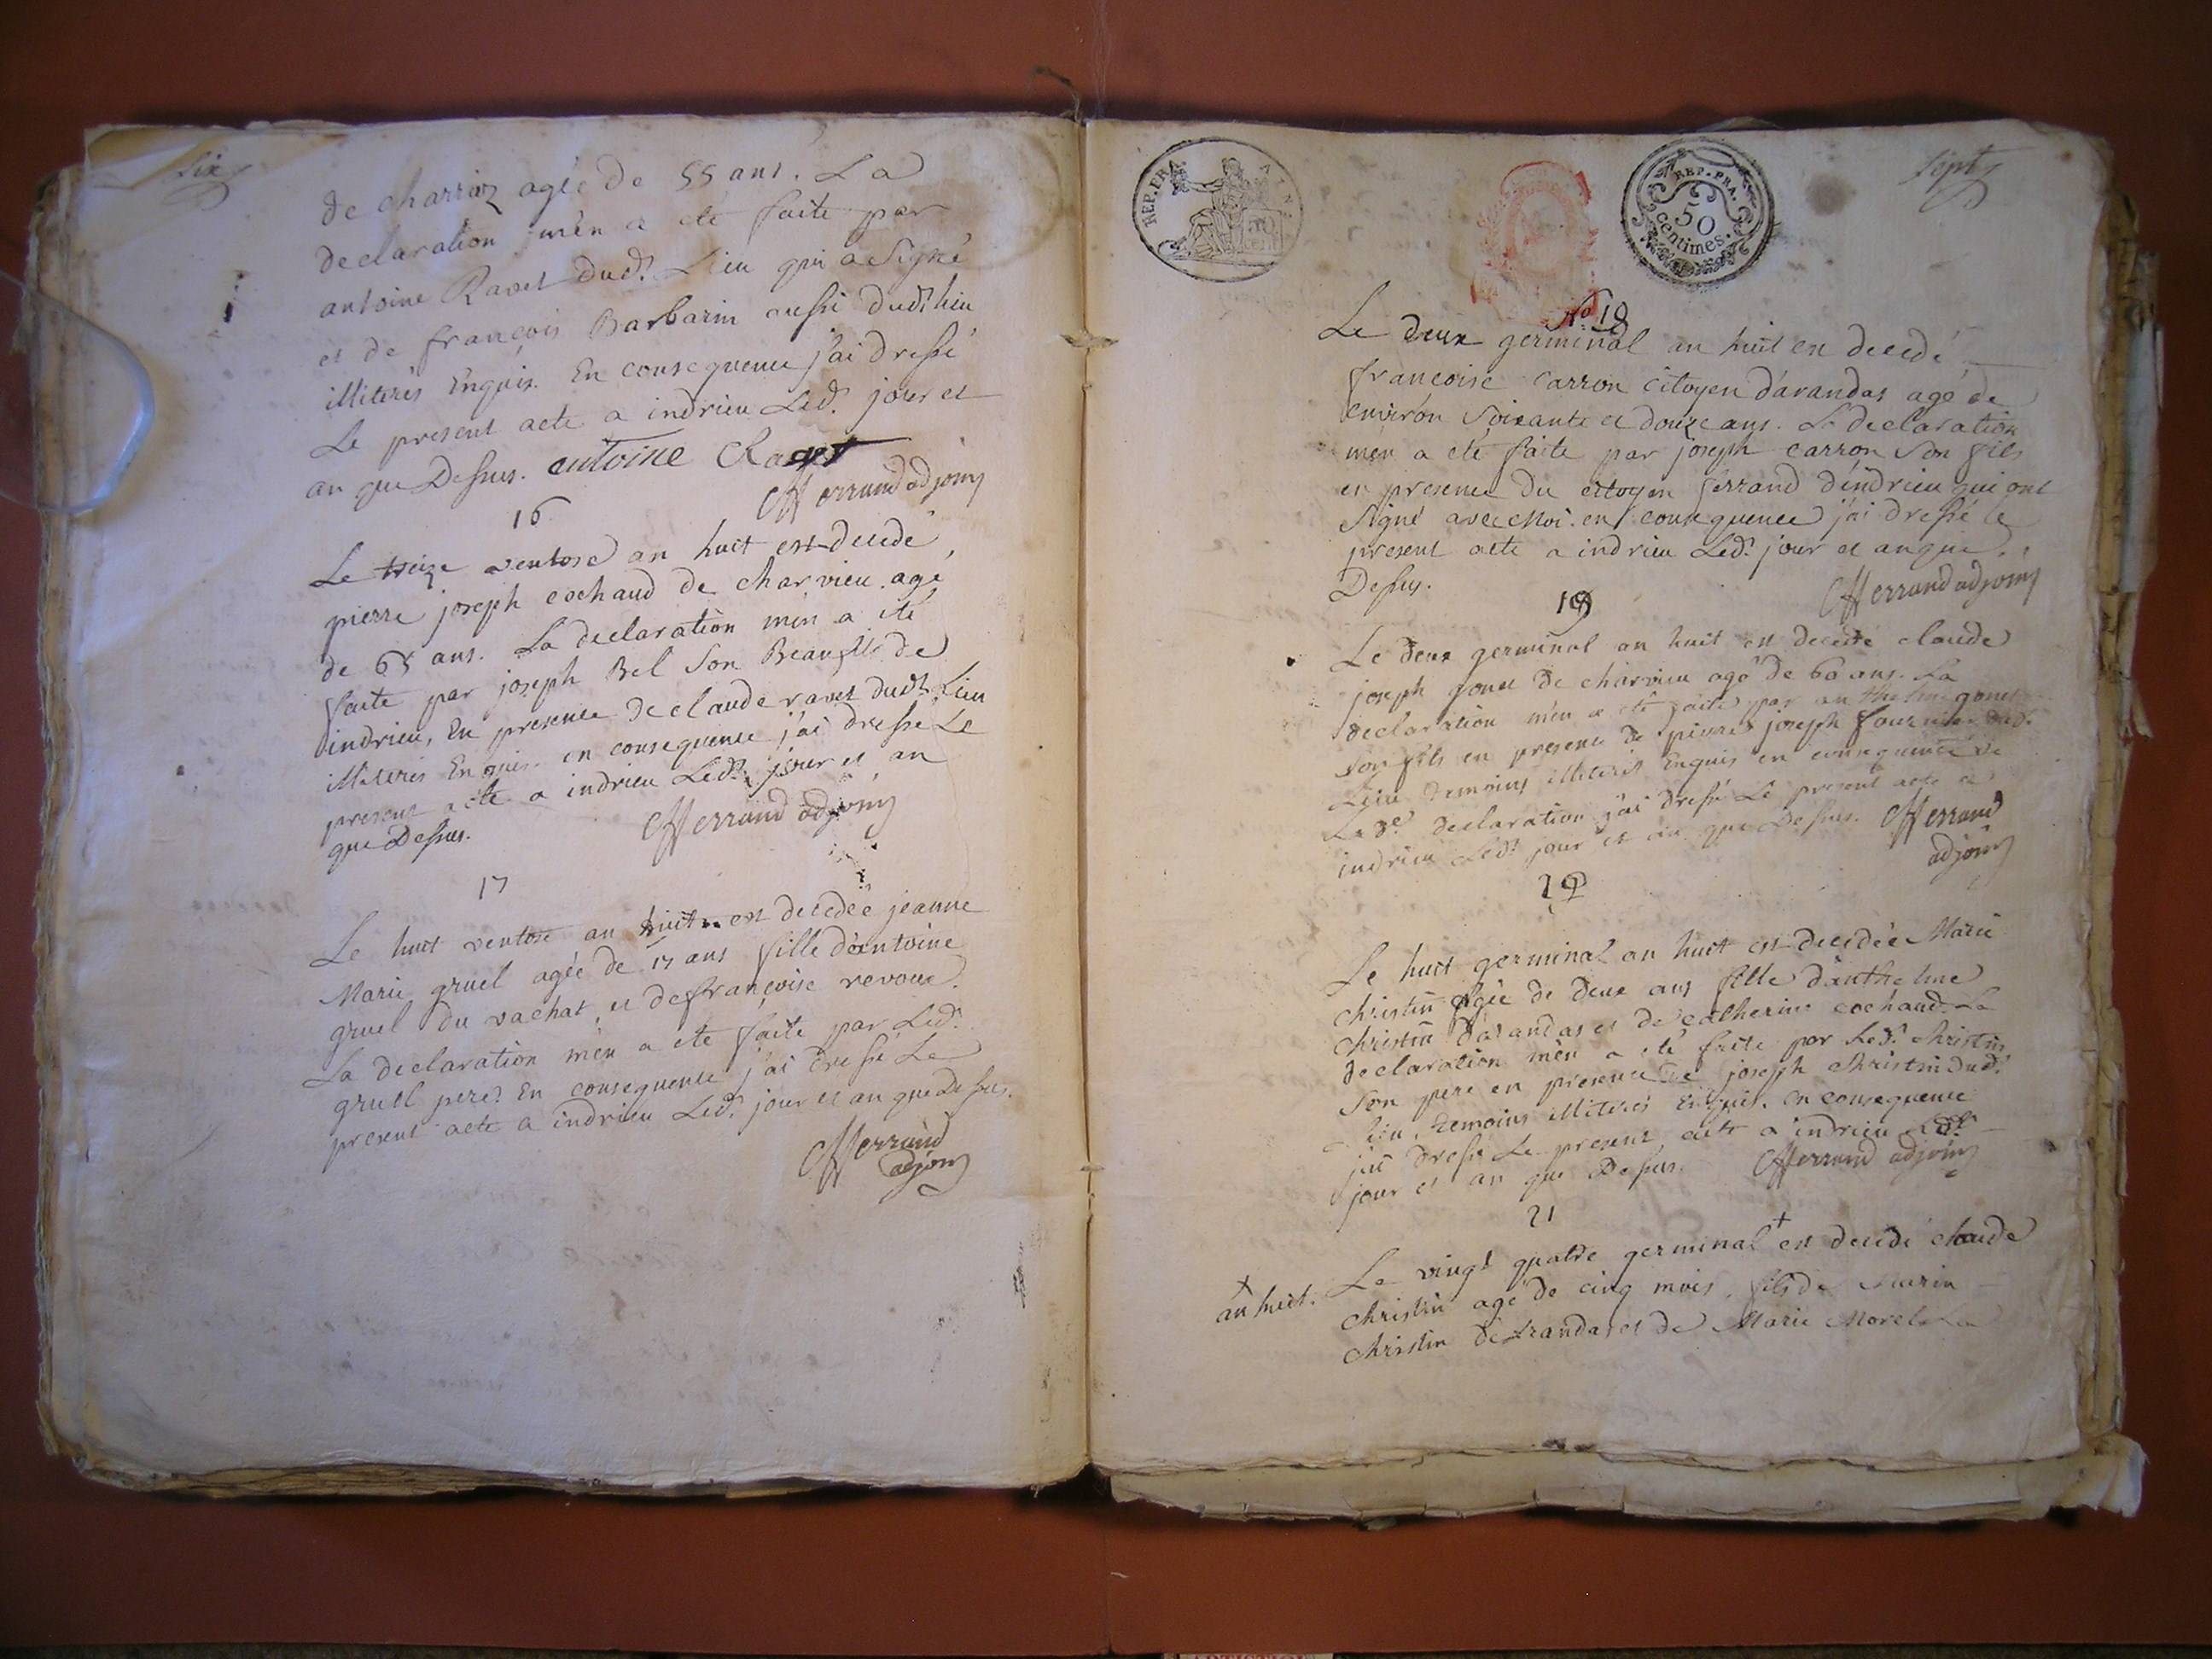 six
de charvieu agée de 55 ans. La
declaration m'en a eté faite par
antoine Ravet dud.t Lieu qui a Signé
et de françois Barbarin aussi dud.t lieu
illiterés Enquis. En consequence j'ai dressé
Le present acte a indrieu Led.t jour et
an que Dessus. antoine Ravet
ferrand adjoint
16
Le treize ventose an huit est decedé
pierre joseph cochaud de charvieu agé
de 65 ans. La declaration m'en a eté
faite par joseph Bel Son Beaufils de
indrieu, En presence de claude ravet dud.t Lieu
illiterés Enquis. en consequence j'ai dressé Le
present acte a indrieu Led.t jour et an
que Dessus. ferrand adjoint
17
Le huit ventose an huit est decedée jeanne
Marie gruel agée de 17 ans fille d'antoine
gruel du vachat, et de françoise revoux.
La declaration m'en a eté faite par Led.t
gruel pere. En consequence j'ai dressé Le
present acte a indrieu Led.t jour et an que Dessus.
ferrand
adjoint
REP. FRA. AIN.
REP. FRA.
50
Centimes.
sept
N.o 18
Le deux germinal an huit est decedé
françoise carron citoyen d'arandas agé de
environ Soixante et douze ans. La declaration
m'en a eté faite par joseph carron Son fils
en presence du citoyen ferrand d'indrieu qui ont
Signé avec Moi. en consequence j'ai dressé le
present acte a indrieu Led.t jour et an que
Dessus. ferrand adjoint
19
Le deux germinal an huit est decedé claude
joseph gonet de charvieu agé de 60 ans. La
declaration m'en a eté faite par anthelme gonet
son fils en presence de pierre joseph fournier dud.t
Lieu temoins illiterés Enquis en consequence de
La d.e declaration j'ai dressé Le present acte a
indrieu Led.t jour et an que Dessus. ferrand
adjoint
20
Le huit germinal an huit est decedée Marie
christin agée de deux ans fille d'anthelme
christin d'arandas et de catherine cochaud. La
declaration m'en a eté faite par Led.t christin
Son pere en presence de joseph christin dud.t
lieu, temoins illiterés Enquis. en consequence
j'ai dressé Le present acte a indrieu Led.t
jour et an que Dessus. ferrand adjoint
21
Le vingt quatre germinal + est decedé claude
+ an huit.
christin agé de cinq mois, fils de Marin
christin d'arandas et de Marie Morel La